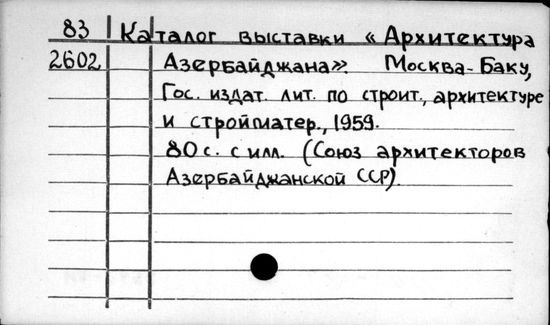 83 Каталог выставки «Архитектура
2602 Азербайджана». Москва-Баку,
Гос. издат. лит. по строит., архитектуре
и стройматер., 1959.
80 с. с илл. (Союз архитекторов
Азербайджанской ССР).